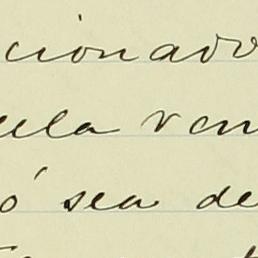 cionado
ela ven
ó sea de